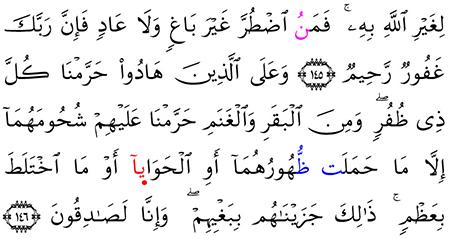 لِغَيْرِ ٱللَّهِ بِهِۦۚ فَمَنُ ٱضْطُرَّ غَيْرَ بَاغٖ وَلَا عَادٖ فَإِنَّ رَبَّكَ
غَفُورٞ رَّحِيمٞ ١٤٥ وَعَلَى ٱلَّذِينَ هَادُواْ حَرَّمْنَا كُلَّ
ذِى ظُفُرٖۖ وَمِنَ ٱلْبَقَرِ وَٱلْغَنَمِ حَرَّمْنَا عَلَيْهِمْ شُحُومَهُمَآ
إِلَّا مَا حَمَلَت ظُّهُورُهُمَآ أَوِ ٱلْحَوَايَآ أَوْ مَا ٱخْتَلَطَ
بِعَظْمٖۚ ذَٰلِكَ جَزَيْنَٰهُم بِبَغْيِهِمْۖ وَإِنَّا لَصَٰدِقُونَ ١٤٦